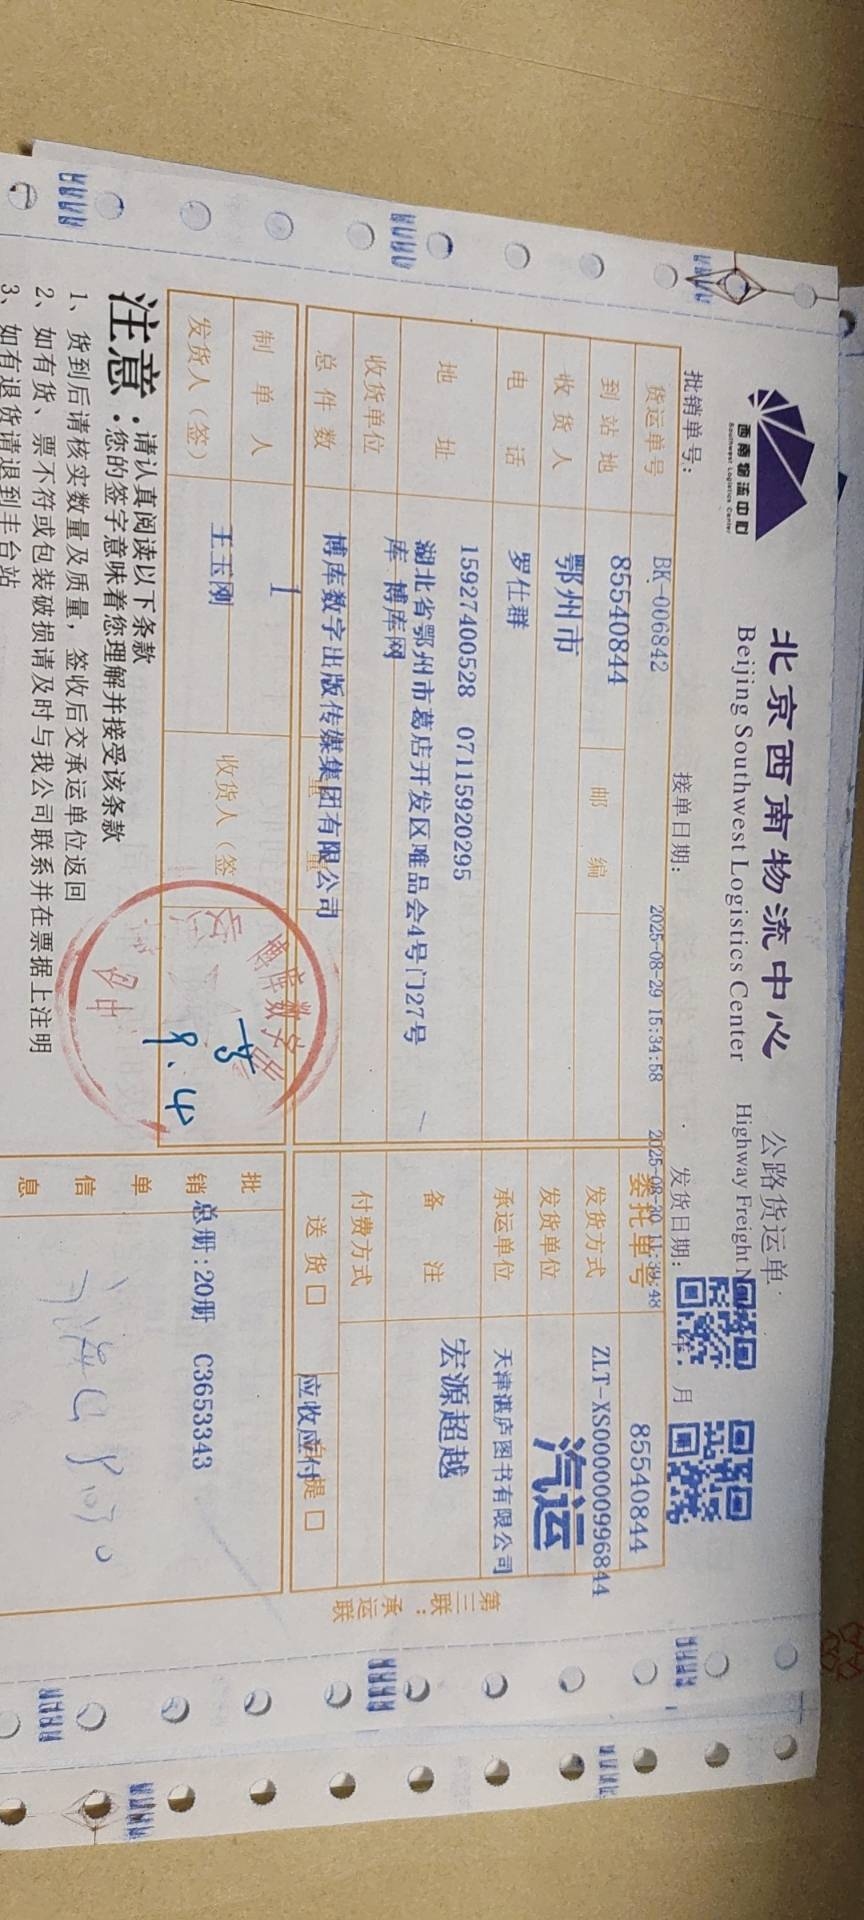 西南物流中心
Southwest Logistics Center
北京西南物流中心
Beijing Southwest Logistics Center
公路货运单
Highway Freight
批销单号：
接单日期：
发货日期：
年 月
BK-006842
2025-08-29 15:34:58
2025-08-30 11:39:48
货运单号
85540844
委托单号
85540844
到站地
鄂州市
邮 编
发货方式
ZLT-XS000000996844
收货人
罗仕群
发货单位
汽运
电 话
15927400528 07115920295
承运单位
天津湛庐图书有限公司
地 址
湖北省鄂州市葛店开发区唯品会4号门27号
库 博库网
备 注
宏源超越
收货单位
博库数字出版传媒集团有限公司
付费方式
总件数
1
送 货 □
应收应付
提 □
制 单 人
王玉刚
发货人（签）
收货人（签
9.4
批
销
单
信
息
总册:20册 C3653343
第三联：承运联
注意：
请认真阅读以下条款
您的签字意味着您理解并接受该条款
1、货到后请核实数量及质量，签收后交承运单位返回
2、如有货、票不符或包装破损请及时与我公司联系并在票据上注明
3、如有退货请退到丰台站